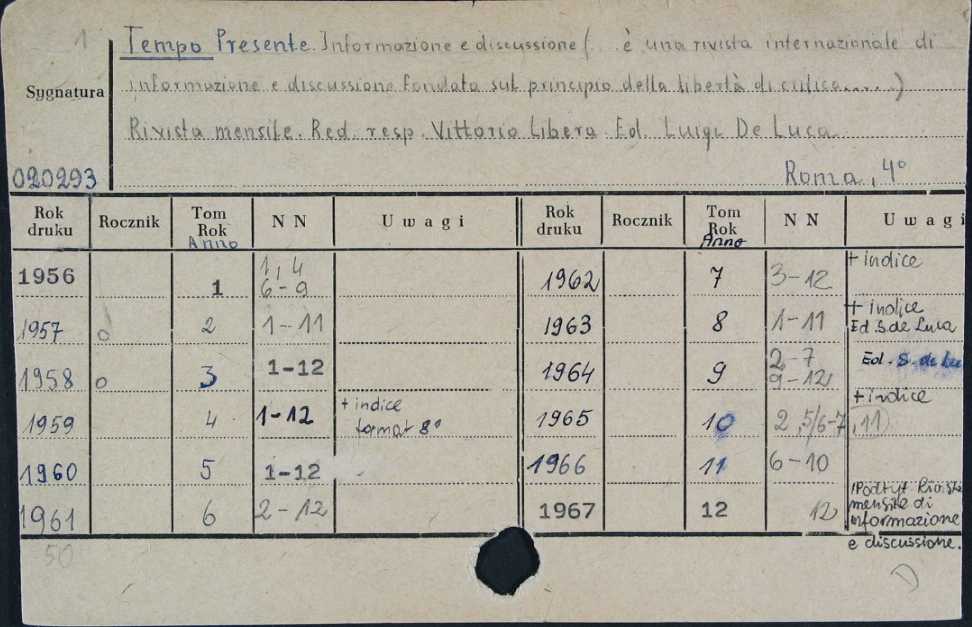 1
Tempo Presente. Informazione e discussione (... è una rivista internazionale di
informazione e discussione fondata sul principio della libertà di critica.....)
Rivista mensile. Red. resp. Vittorio Libera. Ed. Luigi De Luca
Roma, 4°
Sygnatura
020293
Rok druku Rocznik Tom Rok Anno N N Uwagi Rok druku Rocznik Tom Rok Anno N N Uwagi
1956 1 1, 4 6-9 1962 7 3-12 + indice
1957 o 2 1-11 1963 8 1-11 + indice Ed S. de Luca
1958 o 3 1-12 1964 9 2-7 9-12 Ed. S. de Lu
1959 4 1-12 + indice format 8° 1965 10 2, 5/6-7, 11 + indice
1960 5 1-12 1966 11 6-10
1961 6 2-12 1967 12 12 mensile di informazione e discussione.
50